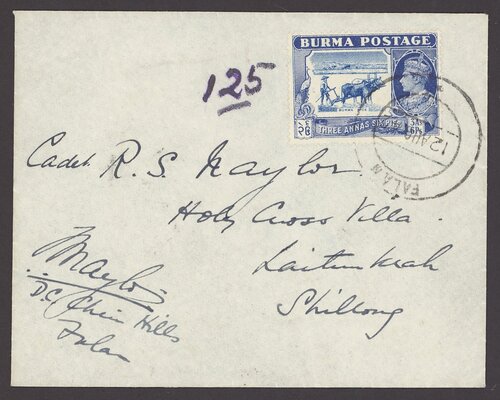 BURMA POSTAGE
125
THREE ANNAS SIX PIES
12 AUG
FALAM
Cadet R. S. Naylor.
Holy Cross Villa.
Laitumkrah
Shillong
Naylor
D.C. Chin Hills
Falam